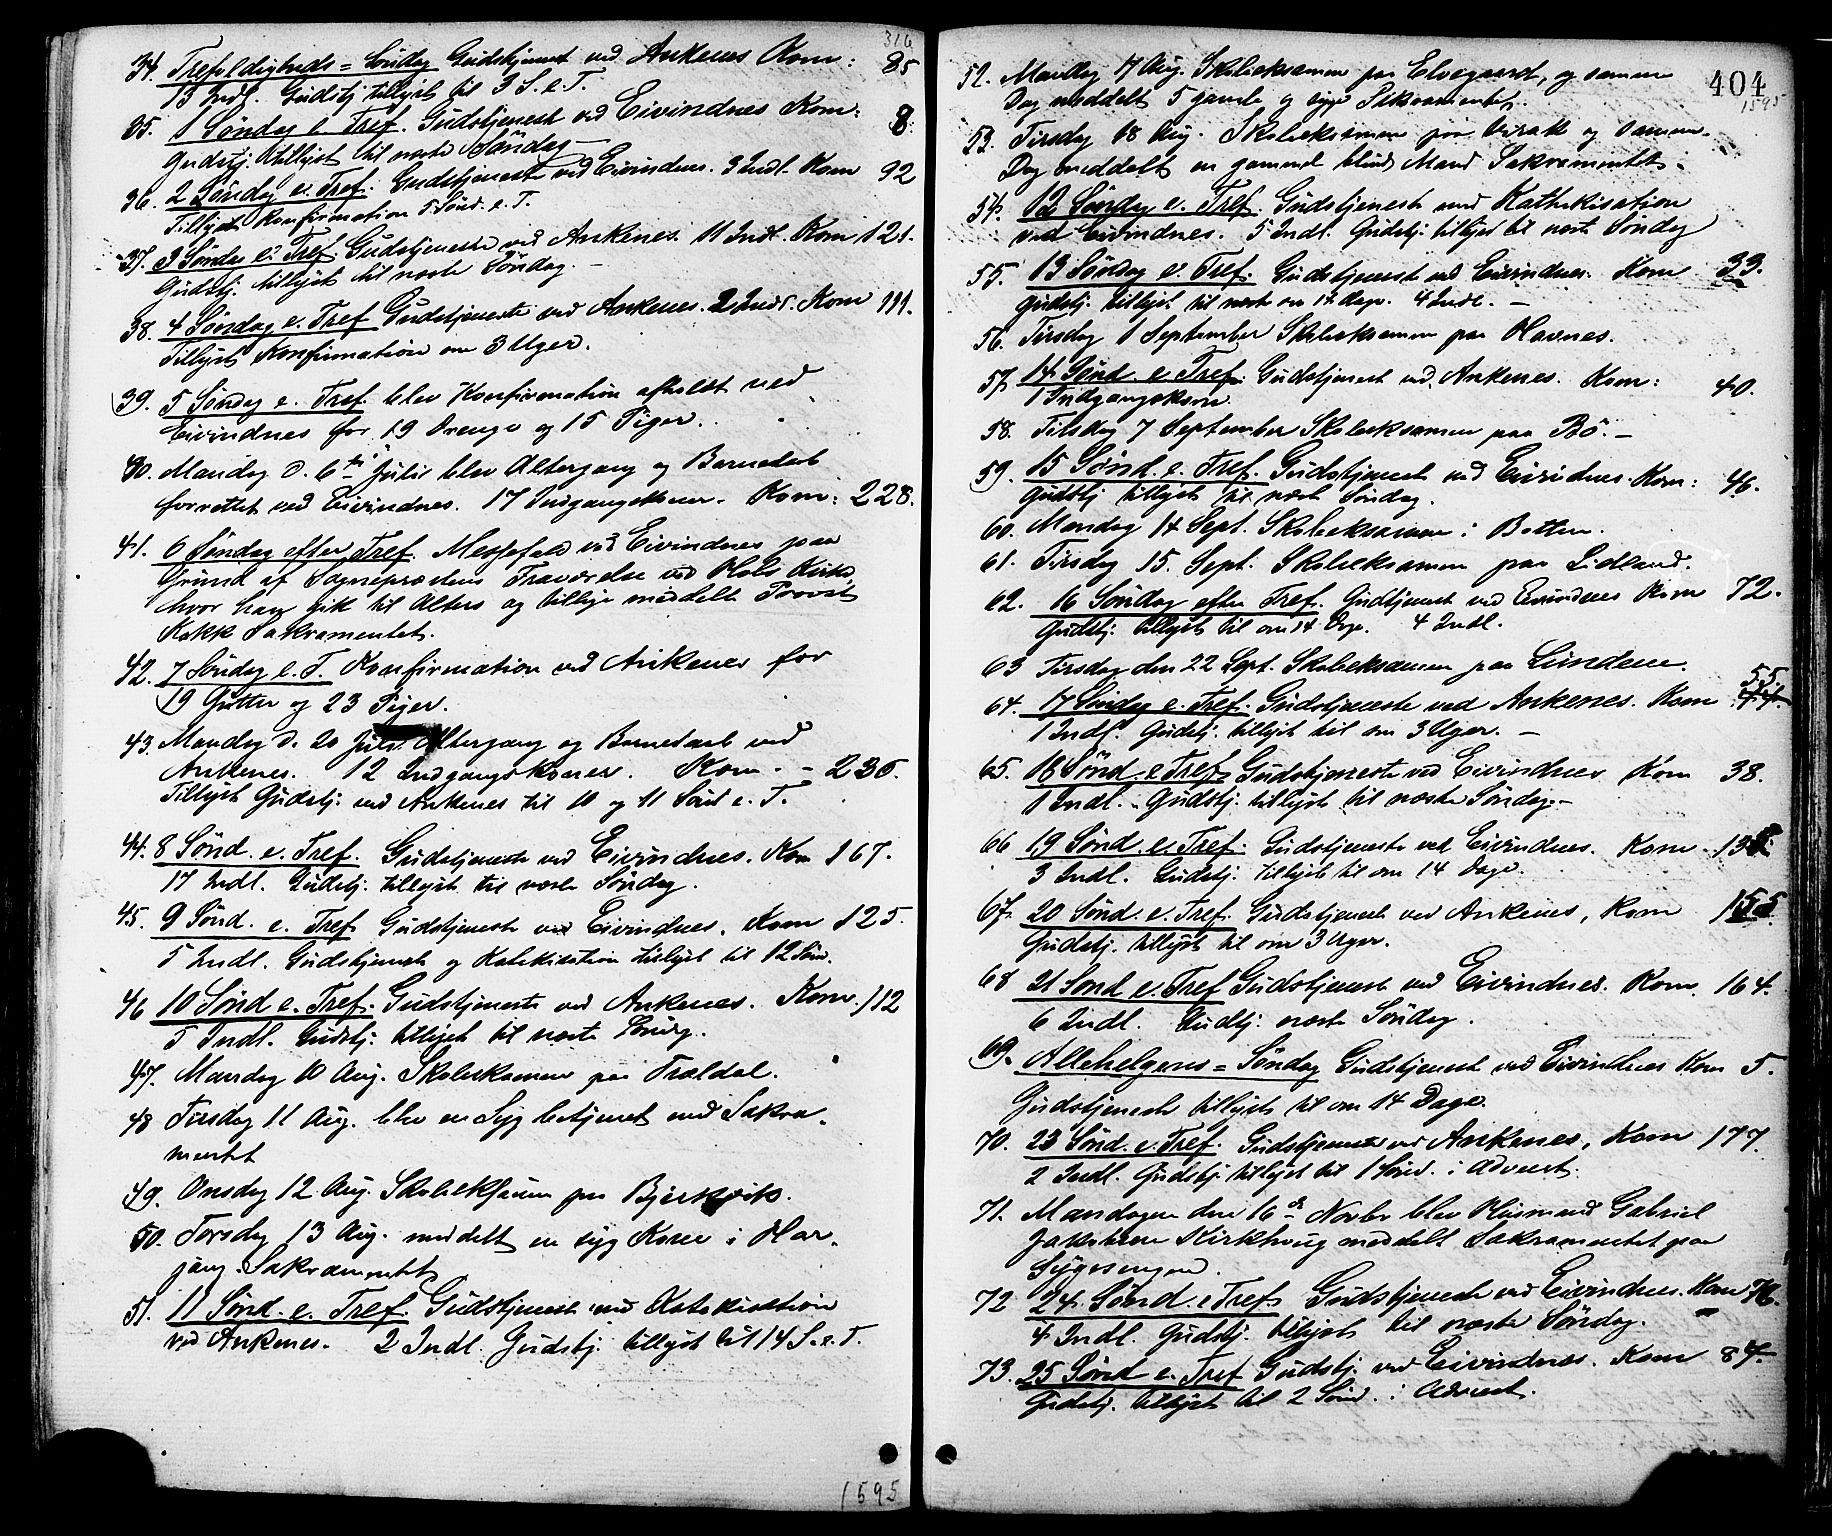 316
34. Trefoldigheds = Søndag Gudstjenest ved Ankenes Kom: 85
13 Indl. Gudstj. tillyst til 3 S. e. T.
35. 1 Søndag e. Tref. Gudstjenest ved Eivindnes Kom: 8.
Gudstj. tillyst til næste Søndag —
36. 2 Søndag e. Tref. Gudstjeneste ved Eivindnes. 3 Indl. Kom 92
Tillyst Konfirmation 5 Sønd. e. T.
37. 3 Søndag e. Tref Gudstjeneste ved Ankenes. 11 Indl. Kom 121.
Gudstj. tillyst til næste Søndag. —
38. 4 Søndag e. Tref Gudstjeneste ved Ankenes. 2 Indl. Kom 111.
Tillyst Konfirmation om 3 Uger.
39. 5 Søndag e. Tref. blev Konfirmation afholdt ved
Eivindnes for 19 Drenge og 15 Piger.
40. Mandag d. 6te Juli blev Altergang og Barnedaab
forrettet ved Eivindnes. 17 Indgangskoner. Kom: 228.
41. 6 Søndag efter Tref. Messefald ved Eivindnes paa
Grund af Sognepræstens Fraværelse ved Hols Kirke,
hvor han gik til Alters og tillige meddelte Provst
Kokk Sakramentet.
42. 7 Søndag e. T. Konfirmation ved Ankenes for
19 Gutter og 23 Piger.
43. Mandag d. 20 Juli Altergang og Barnedaab ved
Ankenes. 12 Indgangskoner. Kom. - 236.
Tillyst Gudstj. ved Ankenes til 10 og 11 Sønd e. T.
44. 8 Sønd. e. Tref. Gudstjeneste ved Eivindnes. Kom 167.
17 Indl. Gudstj. tillyst til næste Søndag.
45. 9 Sønd. e. Tref Gudstjeneste ved Eivindnes. Kom 125.
5 Indl. Gudstjeneste og Katekisation tillyst til 12 Sønd.
46 10 Sønd e. Tref. Gudstjeneste ved Ankenes. Kom. 112
5 Indl. Gudstj. tillyst til næste Søndag.
47. Mandag 10 Aug. Skoleeksamen paa Traldal.
48 Tirsdag 11 Aug. blev en Syg betjenet med Sakra-
mentet
49. Onsdag 12 Aug. Skoleeksamen paa Bjerkvik.
50. Torsdag 13 Aug. meddelt en syg Kone i Har-
jang Sakramentet
51. 11 Sønd. e. Tref. Gudstjenest med Katekisation
ved Ankenes. 2 Indl. Gudstj. tillyst til 14 S. e. T.
1595
404
1595
52. Mandag 17 Aug. Skoleeksamen paa Elvegaard, og samme
Dag meddelt 5 gamle og syge Sakramentet.
53. Tirsdag 18 Aug. Skoleeksamen paa og samme
Dag meddelt en gammel blind Mand Sakramentet.
54. 12 Søndag e. Tref. Gudstjeneste med Kathekisation
ved Eivindnes. 5 Indl. Gudstj. tillyst til næste Søndag
55. 13 Søndag e. Tref. Gudstjenest ved Eivindnes. Kom 33.
Gudstj. tillyst til næste om 14 dage. 4 Indl. —
56. Tirsdag 1 September Skoleeksamen paa Havnes.
57. 14 Sønd. e. Tref. Gudstjenest ved Ankenes. Kom: 40.
1 Indgangskone.
58. Tirsdag 7 September Skoleeksamen paa Bö. —
59. 15 Sønd. e. Tref. Gudstjenest ved Eivindnes. Kom: 46.
Gudstj tillyst til næste Søndag.
60. Mandag 14 Sept. Skoleeksamen i Botten.
61. Tirsdag 15. Sept. Skoleeksamen paa Lidland.
62. 16 Søndag efter Tref. Gudtjenest ved Eivindnes Kom 72.
Gudstj. tillyst til om 14 Dage. 4 Indl.
63 Tirsdag den 22 Sept. Skoleeksamen paa Lundene.
64. 17 Søndag e. Tref. Gudstjeneste ved Ankenes. Kom 55.
1 Indl. Gudstj. tillyst til om 3 Uger. —
65. 18 Sønd. e Tref. Gudstjeneste ved Eivindnes Kom 38.
1 Indl. - Gudstj. tillyst til næste Søndag. —
66 19 Sønd. e. Tref. Gudstjeneste ved Eivindnes. Kom
3 Indl. Gudstj. tillyst til om 14 Dage.
67. 20 Sønd. e. Tref. Gudstjenest ved Ankenes, Kom 155.
Gudstj. tillyst til om 3 Uger.
68 21 Sønd e. Tref Gudstjenest ved Eivindnes. Kom. 164.
6 Indl. Gudtj. næste Søndag.
69. Allehelgens = Søndag Gudstjenest ved Eivindnes Kom 5.
Gudstjeneste tillyst til om 14 Dage.
70. 23 Sønd. e. Tref. Gudstjeneste ved Ankenes, Kom 177.
2 Indl. Gudstj. tillyst til 1 Sønd. i Advent.
71. Mandagen den 16de Novbr blev Husmand Gabriel
Kirkhaug meddelt Sakramentet paa
Sygesengen.
72 24 Sønd. e Tref. Gudstjeneste ved Eivindnes. Kom 76.
4 Indl. Gudstj. tillyst til næste Søndag.
73. 25 Sønd e. Tref Gudstj. ved Eivindnes. Kom 84.
Gudstj. tillyst til 2 Sønd. i Advent.